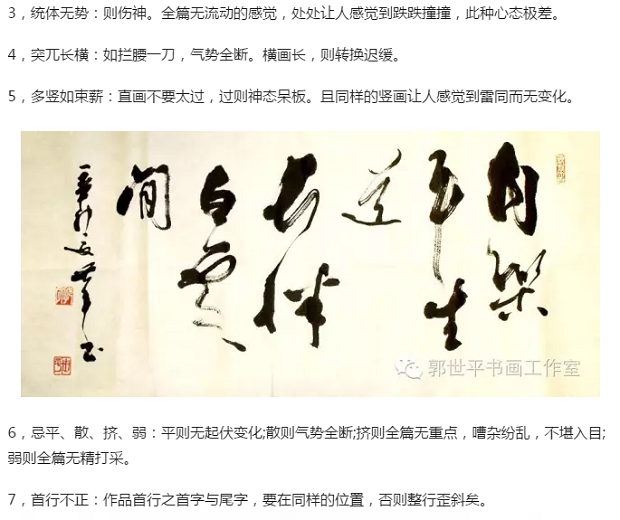 3，统体无势：则伤神。全篇无流动的感觉，处处让人感觉到跌跌撞撞，此种心态极差。
4，突兀长横：如拦腰一刀，气势全断。横画长，则转换迟缓。
5，多竖如束薪：直画不要太过，过则神态呆板。且同样的竖画让人感觉到雷同而无变化。
自樂
平生
道
長伴
白雲
間
辛卯夏世平书
郭世平书画工作室
6，忌平、散、挤、弱：平则无起伏变化;散则气势全断;挤则全篇无重点，嘈杂纷乱，不堪入目;
弱则全篇无精打采。
7，首行不正：作品首行之首字与尾字，要在同样的位置，否则整行歪斜矣。